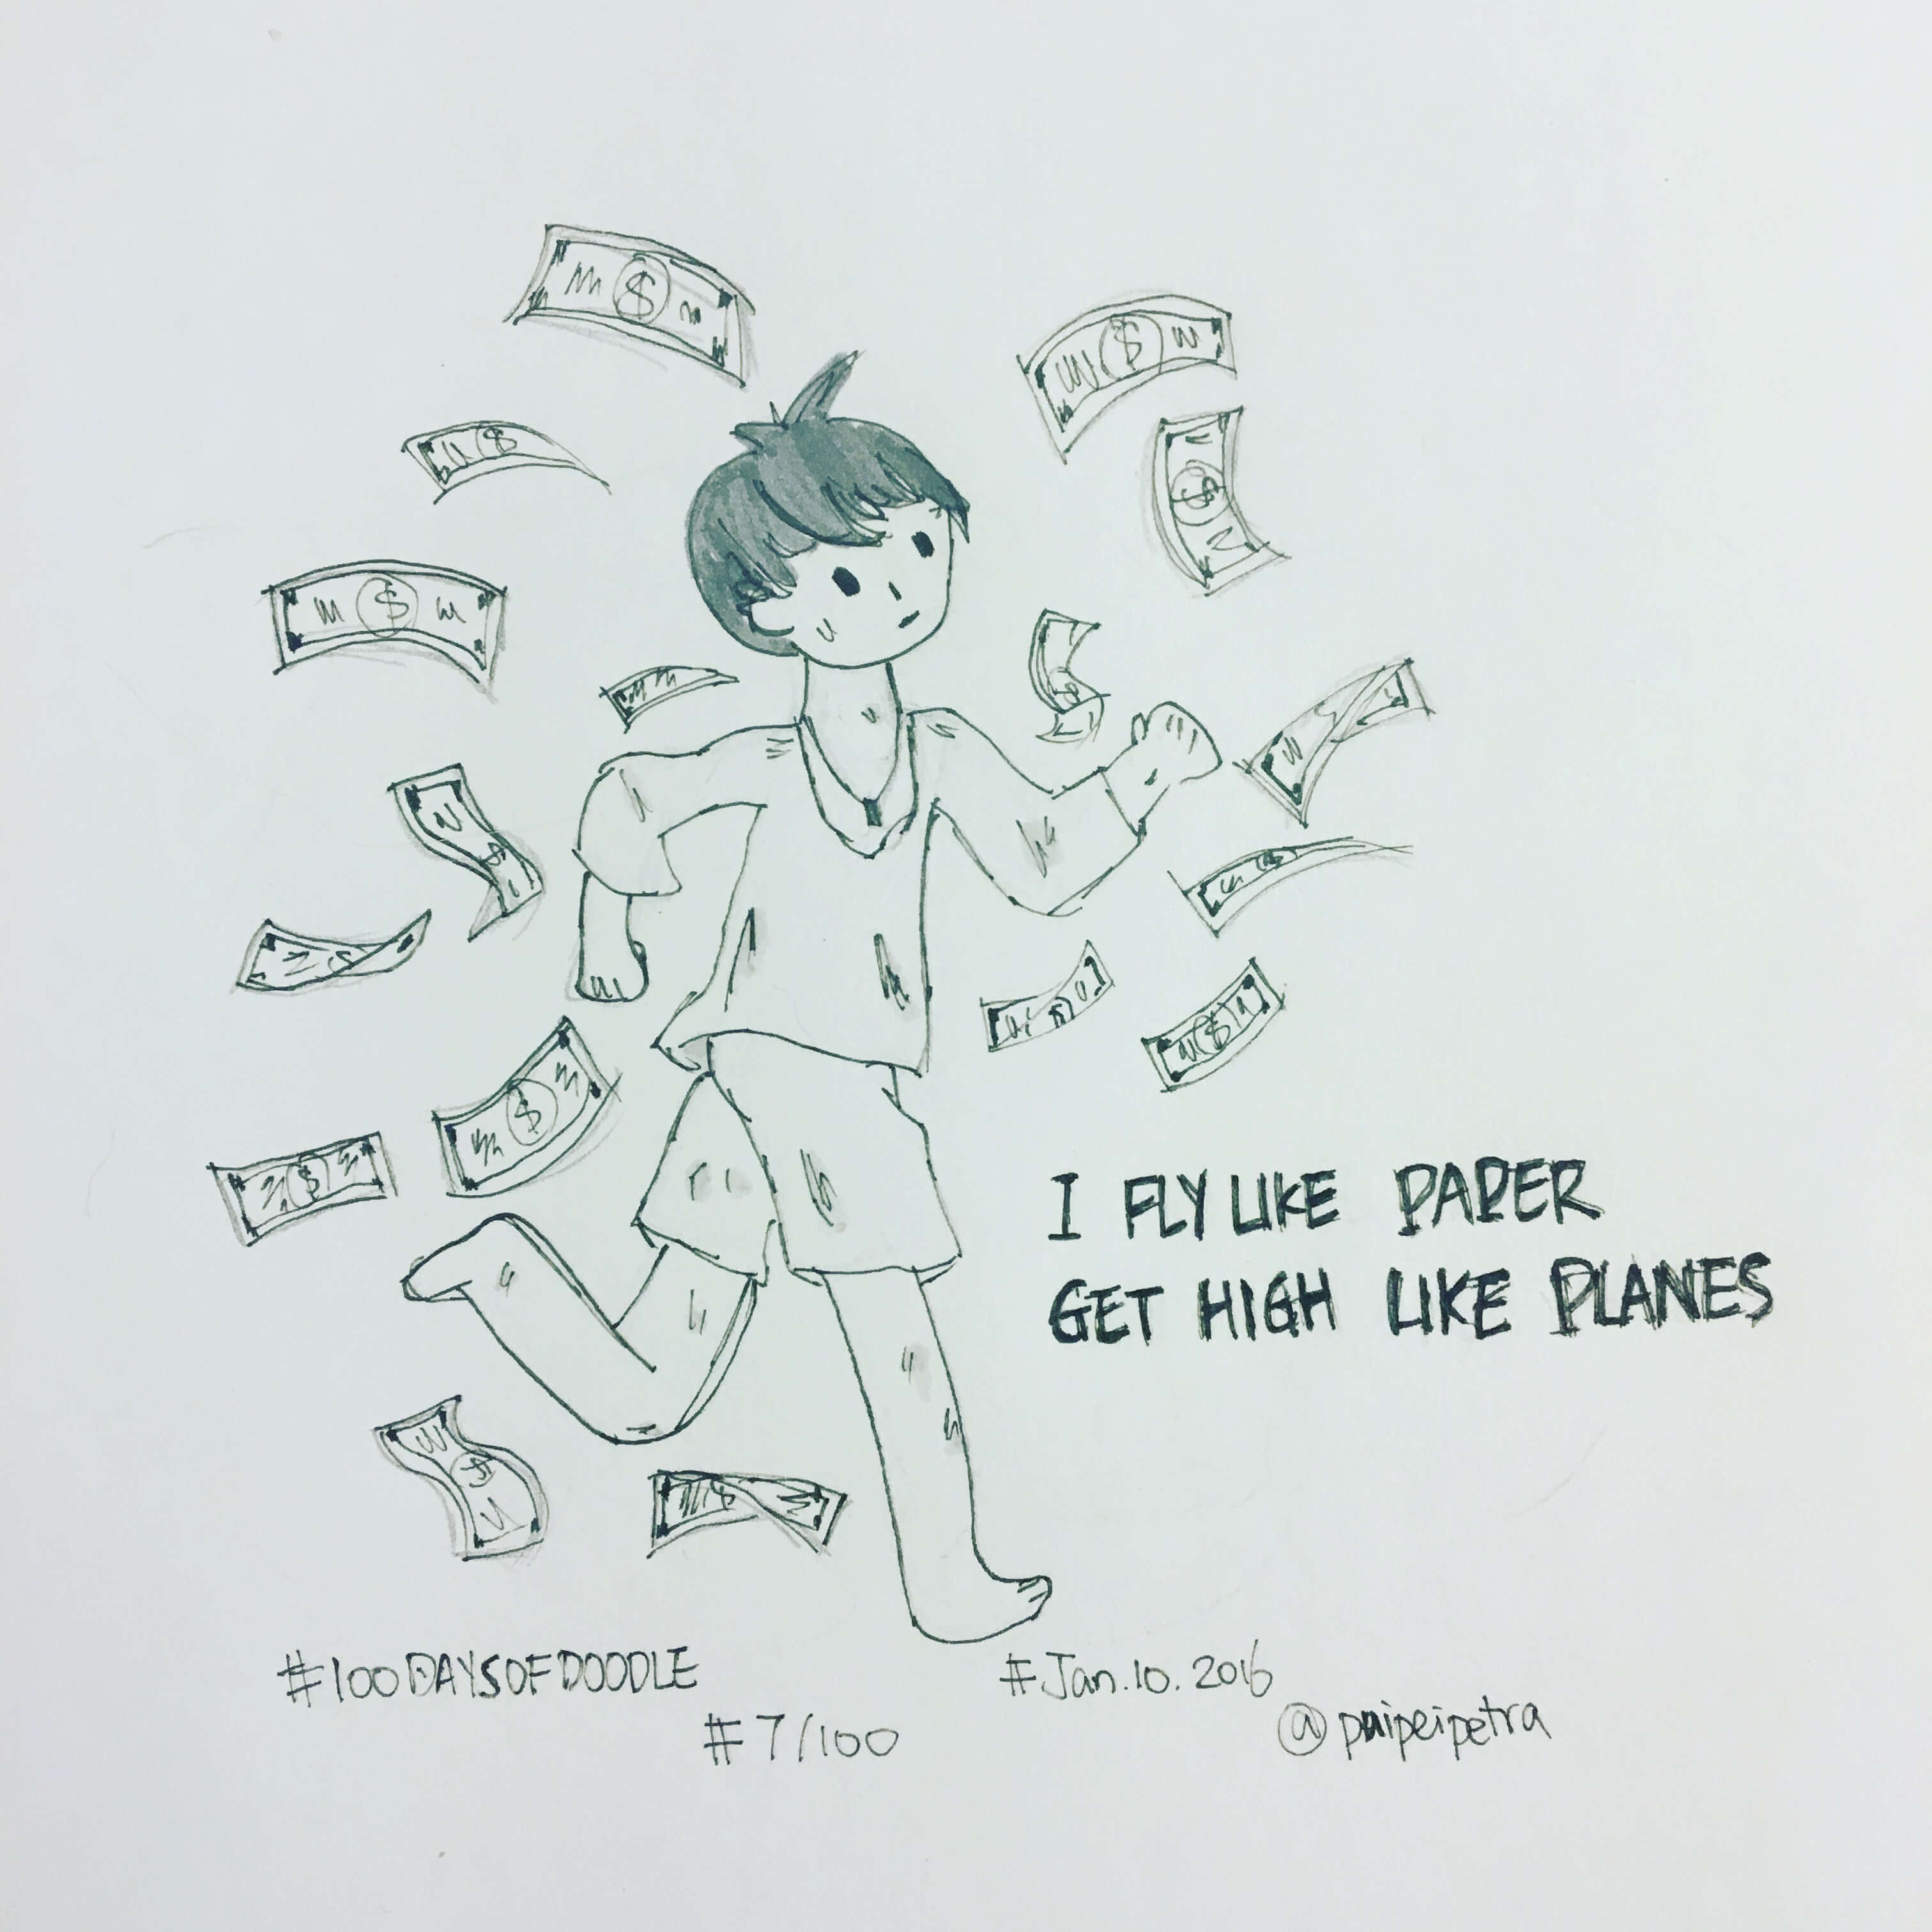 I FLY LIKE PAPER
GET HIGH LIKE PLANES
#100DAYSOFDOODLE
#7/100
#Jan.10.2016
@paipeipetra
$
$
$
$
$
$
$
$
$
$
$
$